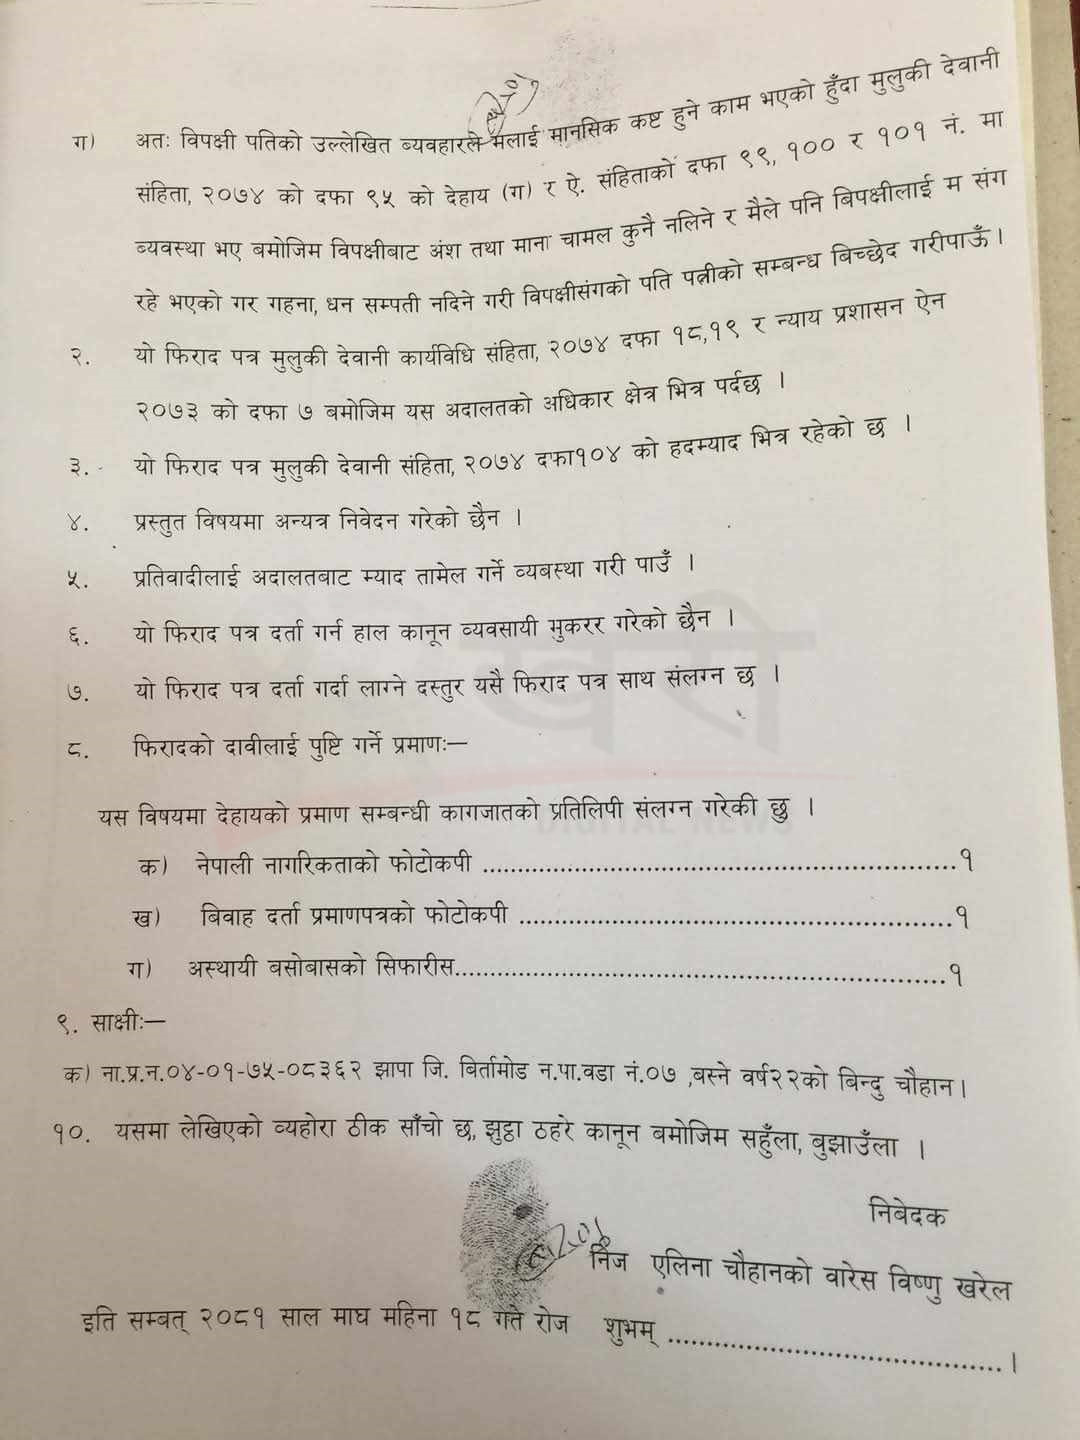 ग) अतः विपक्षी पतिको उल्लेखित व्यवहारले मलाई मानसिक कष्ट हुने काम भएको हुँदा मुलुकी देवानी
संहिता, २०७४ को दफा ९५ को देहाय (ग) र ऐ. संहिताको दफा ९९, १०० र १०१ नं. मा
ब्यवस्था भए बमोजिम विपक्षीबाट अंश तथा माना चामल कुनै नलिने र मैले पनि बिपक्षीलाई म संग
रहे भएको गर गहना, धन सम्पती नदिने गरी विपक्षीसंगको पति पत्नीको सम्बन्ध बिच्छेद गरीपाऊँ ।
२. यो फिराद पत्र मुलुकी देवानी कार्यविधि संहिता, २०७४ दफा १८,१९ र न्याय प्रशासन ऐन
२०७३ को दफा ७ बमोजिम यस अदालतको अधिकार क्षेत्र भित्र पर्दछ ।
३. यो फिराद पत्र मुलुकी देवानी संहिता, २०७४ दफा१०४ को हदम्याद भित्र रहेको छ ।
४. प्रस्तुत विषयमा अन्यत्र निवेदन गरेको छैन ।
५. प्रतिवादीलाई अदालतबाट म्याद तामेल गर्ने व्यबस्था गरी पाउँ ।
६. यो फिराद पत्र दर्ता गर्न हाल कानून व्यवसायी मुकरर गरेको छैन ।
७. यो फिराद पत्र दर्ता गर्दा लाग्ने दस्तुर यसै फिराद पत्र साथ संलग्न छ ।
८. फिरादको दावीलाई पुष्टि गर्ने प्रमाणः–
यस विषयमा देहायको प्रमाण सम्बन्धी कागजातको प्रतिलिपी संलग्न गरेकी छु ।
DIGITAL NEWS
क) नेपाली नागरिकताको फोटोकपी ..........................................................१
ख) बिवाह दर्ता प्रमाणपत्रको फोटोकपी .....................................................१
ग) अस्थायी बसोबासको सिफारीस............................................................१
९. साक्षीः–
क) ना.प्र.न.०४-०१-७५-०८३६२ झापा जि. बिर्तामोड न.पा.वडा नं.०७ ,बस्ने वर्ष२२को बिन्दु चौहान।
१०. यसमा लेखिएको व्यहोरा ठीक साँचो छ, झुट्ठा ठहरे कानून बमोजिम सहुँला, बुझाउँला ।
निबेदक
निज एलिना चौहानको वारेस विष्णु खरेल
इति सम्बत् २०८१ साल माघ महिना १८ गते रोज शुभम् ........................................।